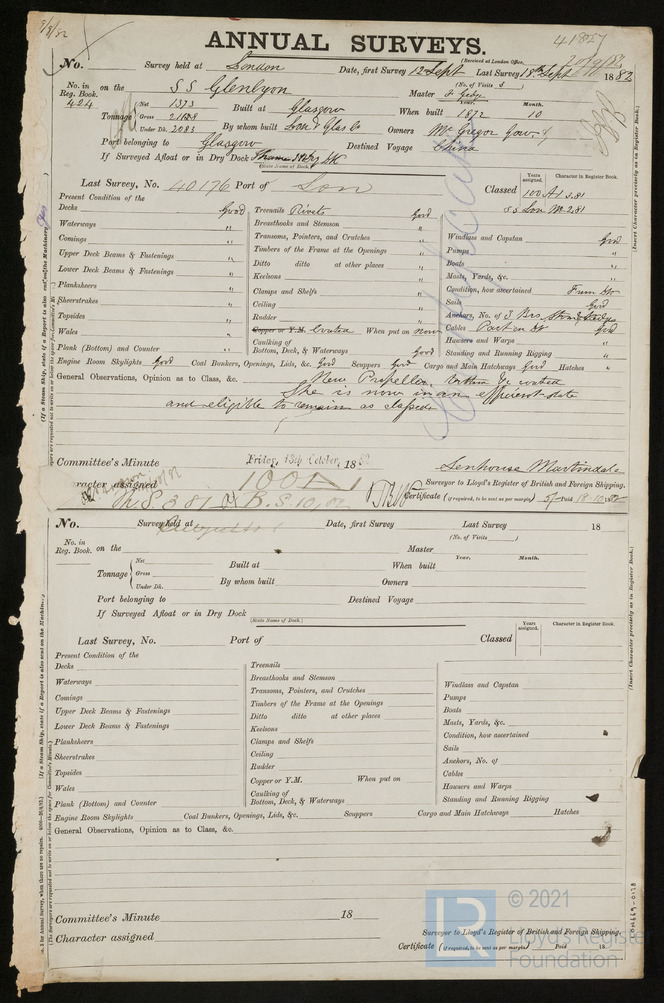 41827
ANNUAL SURVEYS.
(Received at London Office,
No. Survey held at London Date, first Survey 12 Sept Last Survey 18th Sept 1882
(No. of Visits)
No. in Reg. Book. 424 on the SS Glenlyon Master
Year. Month.
Tonnage Net 1373 Built at Glasgow When built 1872 10
Gross
Under Dk. 2083 By whom built Lon & Glas Co Owners McGregor Gow &
Port belonging to Glasgow Destined Voyage China
If Surveyed Afloat or in Dry Dock
(State Name of Dock.)
Years assigned. Character in Register Book.
Last Survey, No. 40176 Port of Lon Classed 100A1 3.81
SS Lon
Present Condition of the
Decks Good
Waterways "
Comings "
Upper Deck Beams & Fastenings "
Lower Deck Beams & Fastenings "
Planksheers "
Sheerstrakes "
Topsides "
Wales "
Plank (Bottom) and Counter "
Treenails Rivets Good
Breasthooks and Stemson "
Transoms, Pointers, and Crutches "
Timbers of the Frame at the Openings "
Ditto ditto at other places "
Keelsons "
Clamps and Shelfs "
Ceiling "
Rudder "
Copper or Y.M. Coated When put on now
Caulking of Bottom, Deck, & Waterways Good
Windlass and Capstan Good
Pumps "
Boats "
Masts, Yards, &c. "
Condition, how ascertained From Dk
Sails Good
Anchors, No. of 3 Brs
Cables Part on Dk Good
Hawsers and Warps "
Standing and Running Rigging "
Engine Room Skylights Good Coal Bunkers, Openings, Lids, &c. Good Scuppers Good Cargo and Main Hatchways Good Hatches "
General Observations, Opinion as to Class, &c. New Propeller, coated
She is now in an efficient state
and eligible to remain as classed
Committee's Minute Friday, 13th October, 1882
Character assigned 100A1
Senhouse Martindale
Surveyor to Lloyd's Register of British and Foreign Shipping.
Certificate (if required, to be sent as per margin) 5/- Paid 18.10.1882
No. Survey held at Date, first Survey Last Survey 18
(No. of Visits)
No. in Reg. Book. on the Master
Year. Month.
Tonnage Net Built at When built
Gross
Under Dk. By whom built Owners
Port belonging to Destined Voyage
If Surveyed Afloat or in Dry Dock
(State Name of Dock.)
Years assigned. Character in Register Book.
Last Survey, No. Port of Classed
Present Condition of the
Decks
Waterways
Comings
Upper Deck Beams & Fastenings
Lower Deck Beams & Fastenings
Planksheers
Sheerstrakes
Topsides
Wales
Plank (Bottom) and Counter
Treenails
Breasthooks and Stemson
Transoms, Pointers, and Crutches
Timbers of the Frame at the Openings
Ditto ditto at other places
Keelsons
Clamps and Shelfs
Ceiling
Rudder
Copper or Y.M. When put on
Caulking of Bottom, Deck, & Waterways
Windlass and Capstan
Pumps
Boats
Masts, Yards, &c.
Condition, how ascertained
Sails
Anchors, No. of
Cables
Hawsers and Warps
Standing and Running Rigging
Engine Room Skylights Coal Bunkers, Openings, Lids, &c. Scuppers Cargo and Main Hatchways Hatches
General Observations, Opinion as to Class, &c.
Committee's Minute 18
Character assigned
Surveyor to Lloyd's Register of British and Foreign Shipping.
Certificate (if required, to be sent as per margin) Paid 18
(Insert Character precisely as in Register Book.)
(Insert Character precisely as in Register Book.)
LR
© 2021
Lloyd's Register
Foundation